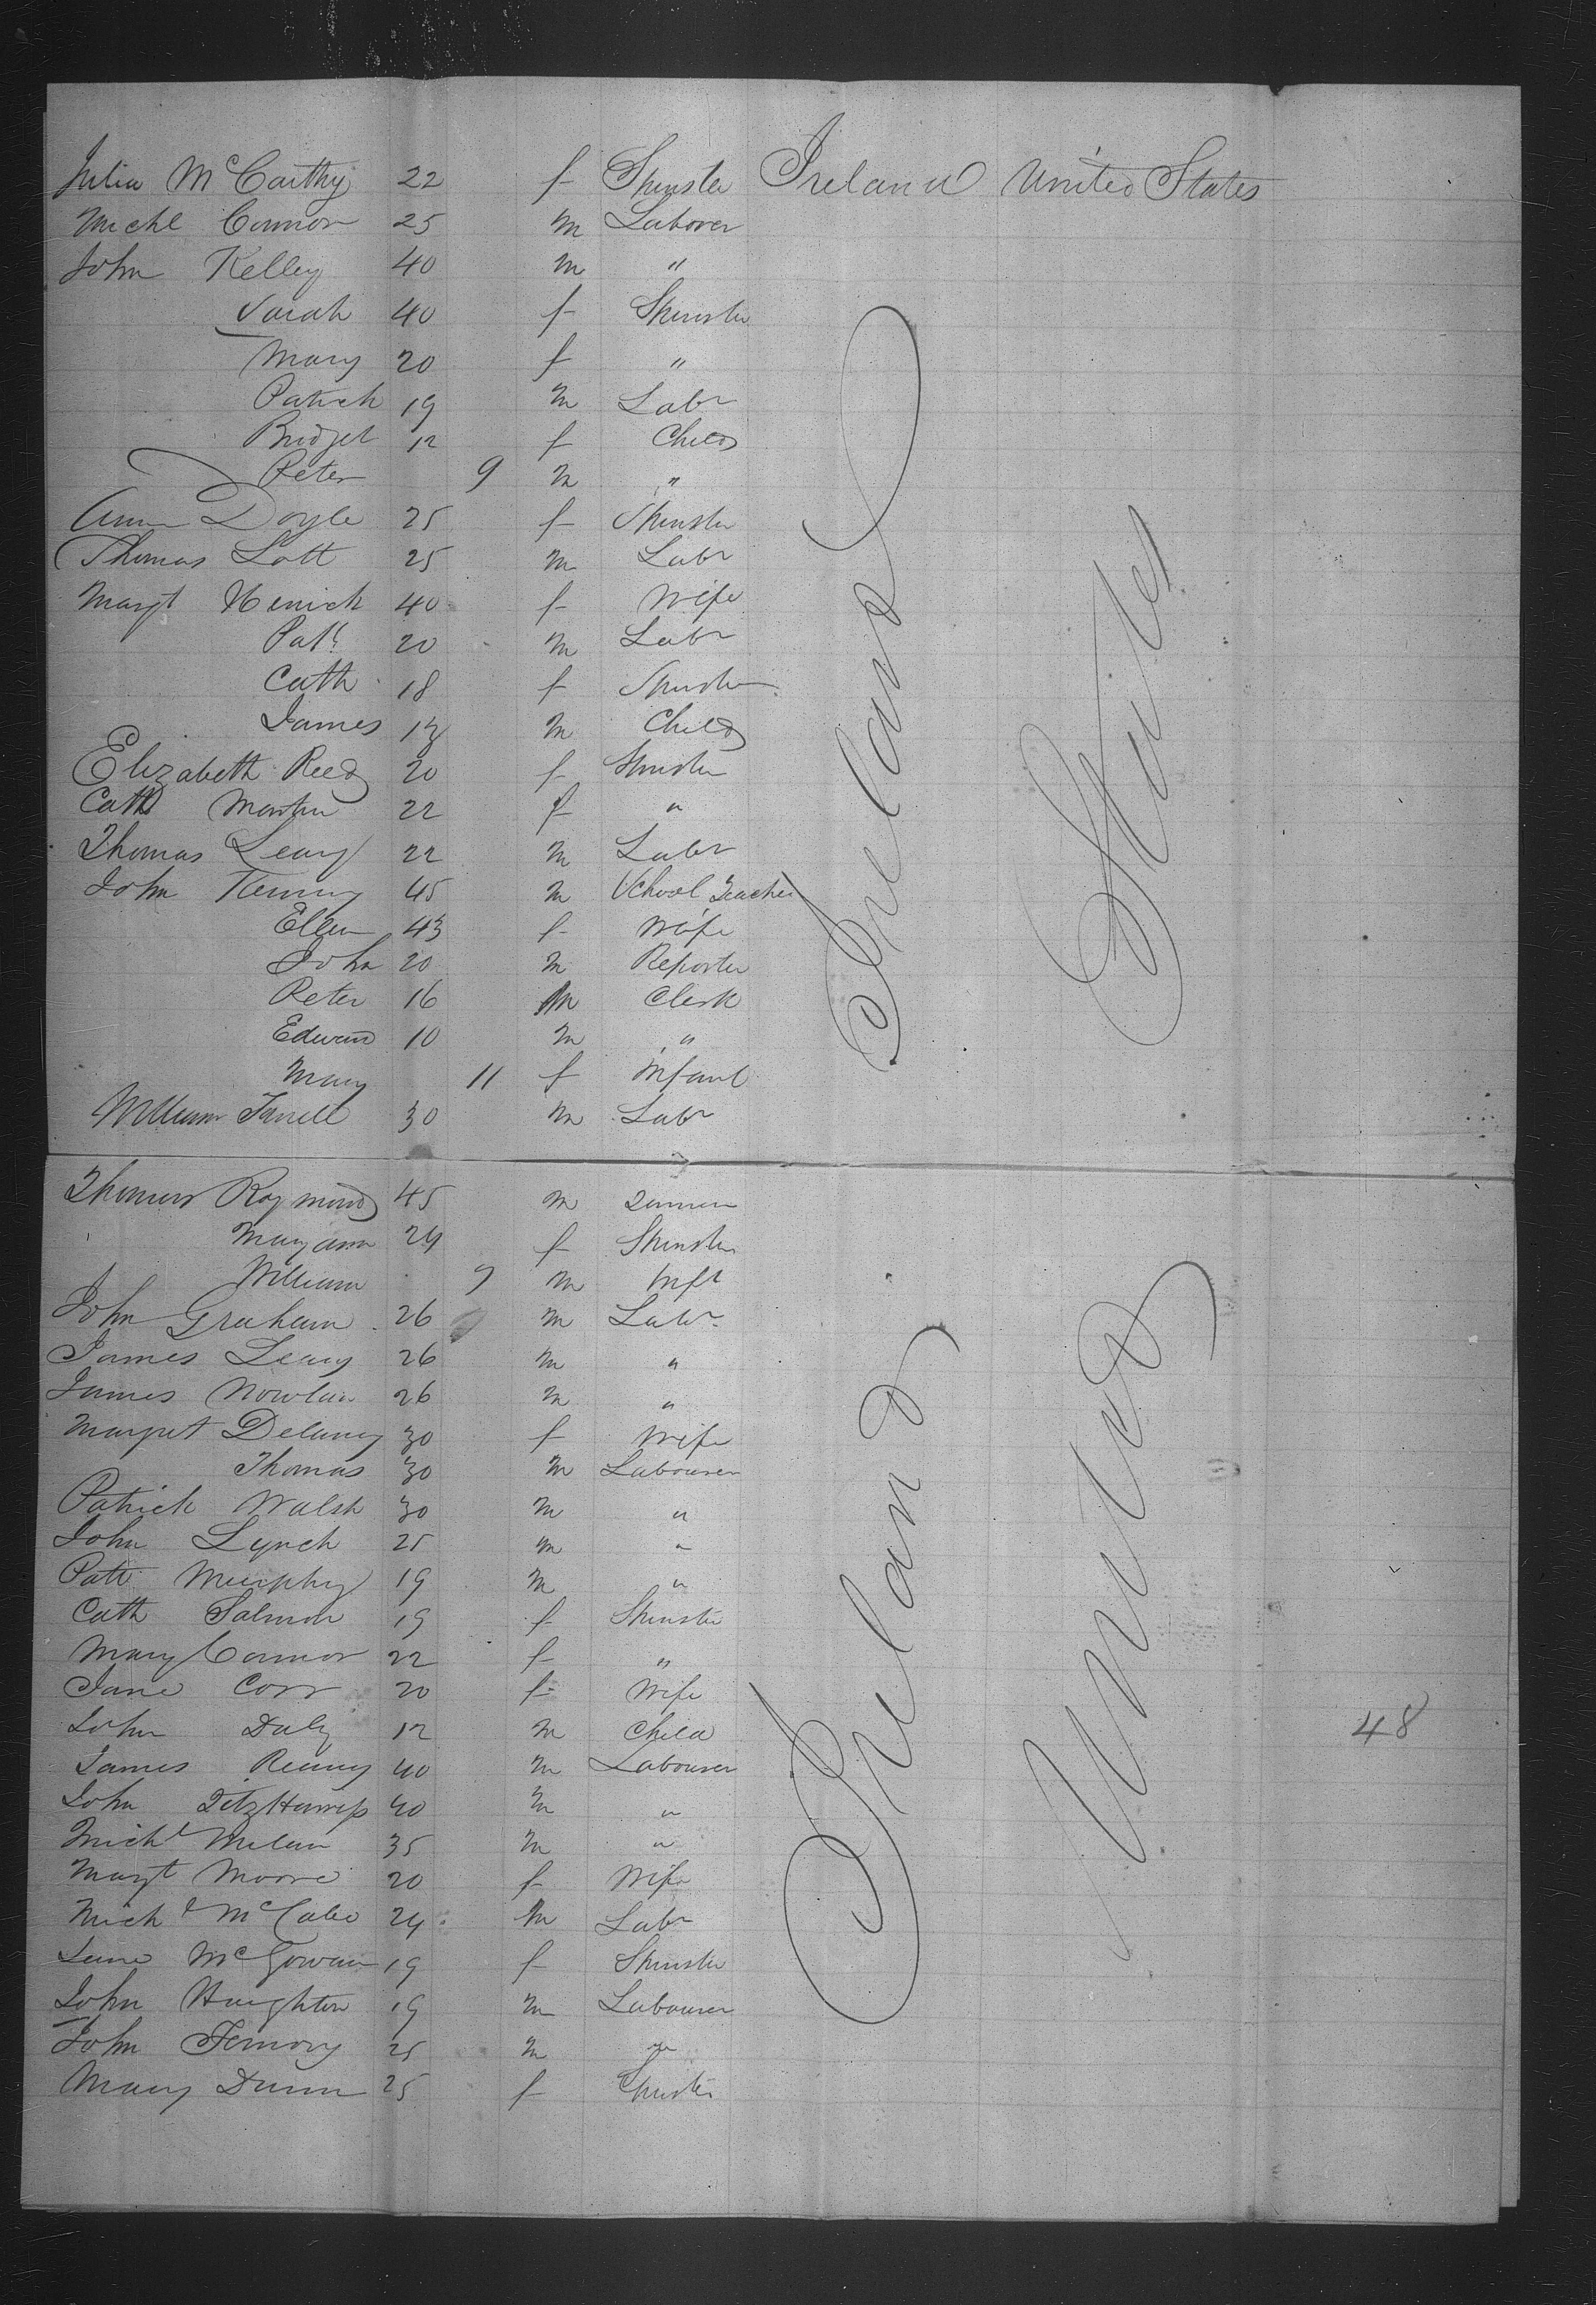 Julia McCarthy 22 f Spinster Ireland United States
Michl Connor 25 m Laborer
John Kelley 40 m "
Sarah 40 f Spinster
Mary 20 f "
Patrick 19 m Labr
Bridget 12 f Child
Peter 9 m "
Ann Doyle 25 f Spinster
Thomas Lott 25 m Labr
Margt 40 f Wife
Patk 20 m Labr
Cath 18 f Spinster
James 13 m Child
Elizabeth Reed 20 f Spinster
Cath Martin 22 f "
Thomas Leary 22 m Labr
John 45 m School Teacher
Ellen 43 f Wife
John 20 m Reporter
Peter 16 m Clerk
Edward 10 m "
Mary 11 f Infant
William Farrell 30 m Labr
Ireland
States
Thomas Raymond 45 m
Maryann 24 f Spinster
William 7 m Inft
John Graham 26 m Labr
James Leary 26 m "
James Nowlan 26 m "
Margret Delaney 30 f Wife
Thomas 30 m Labourer
Patrick Walsh 30 m "
John Lynch 25 m "
Patt Murphy 19 m "
Cath Salmon 19 f Spinster
Mary Connor 22 f "
Jane Corr 20 f Wife
John Daly 12 m Child
James 40 m Labourer
John 40 m "
Michl 35 m "
Margt Moore 20 f Wife
Michl McCabe 24 m Labr
Jane McGowan 19 f Spinster
John Haughton 19 m Labourer
John 25 m "
Mary Dunn 25 f Spinster
Ireland
United
48